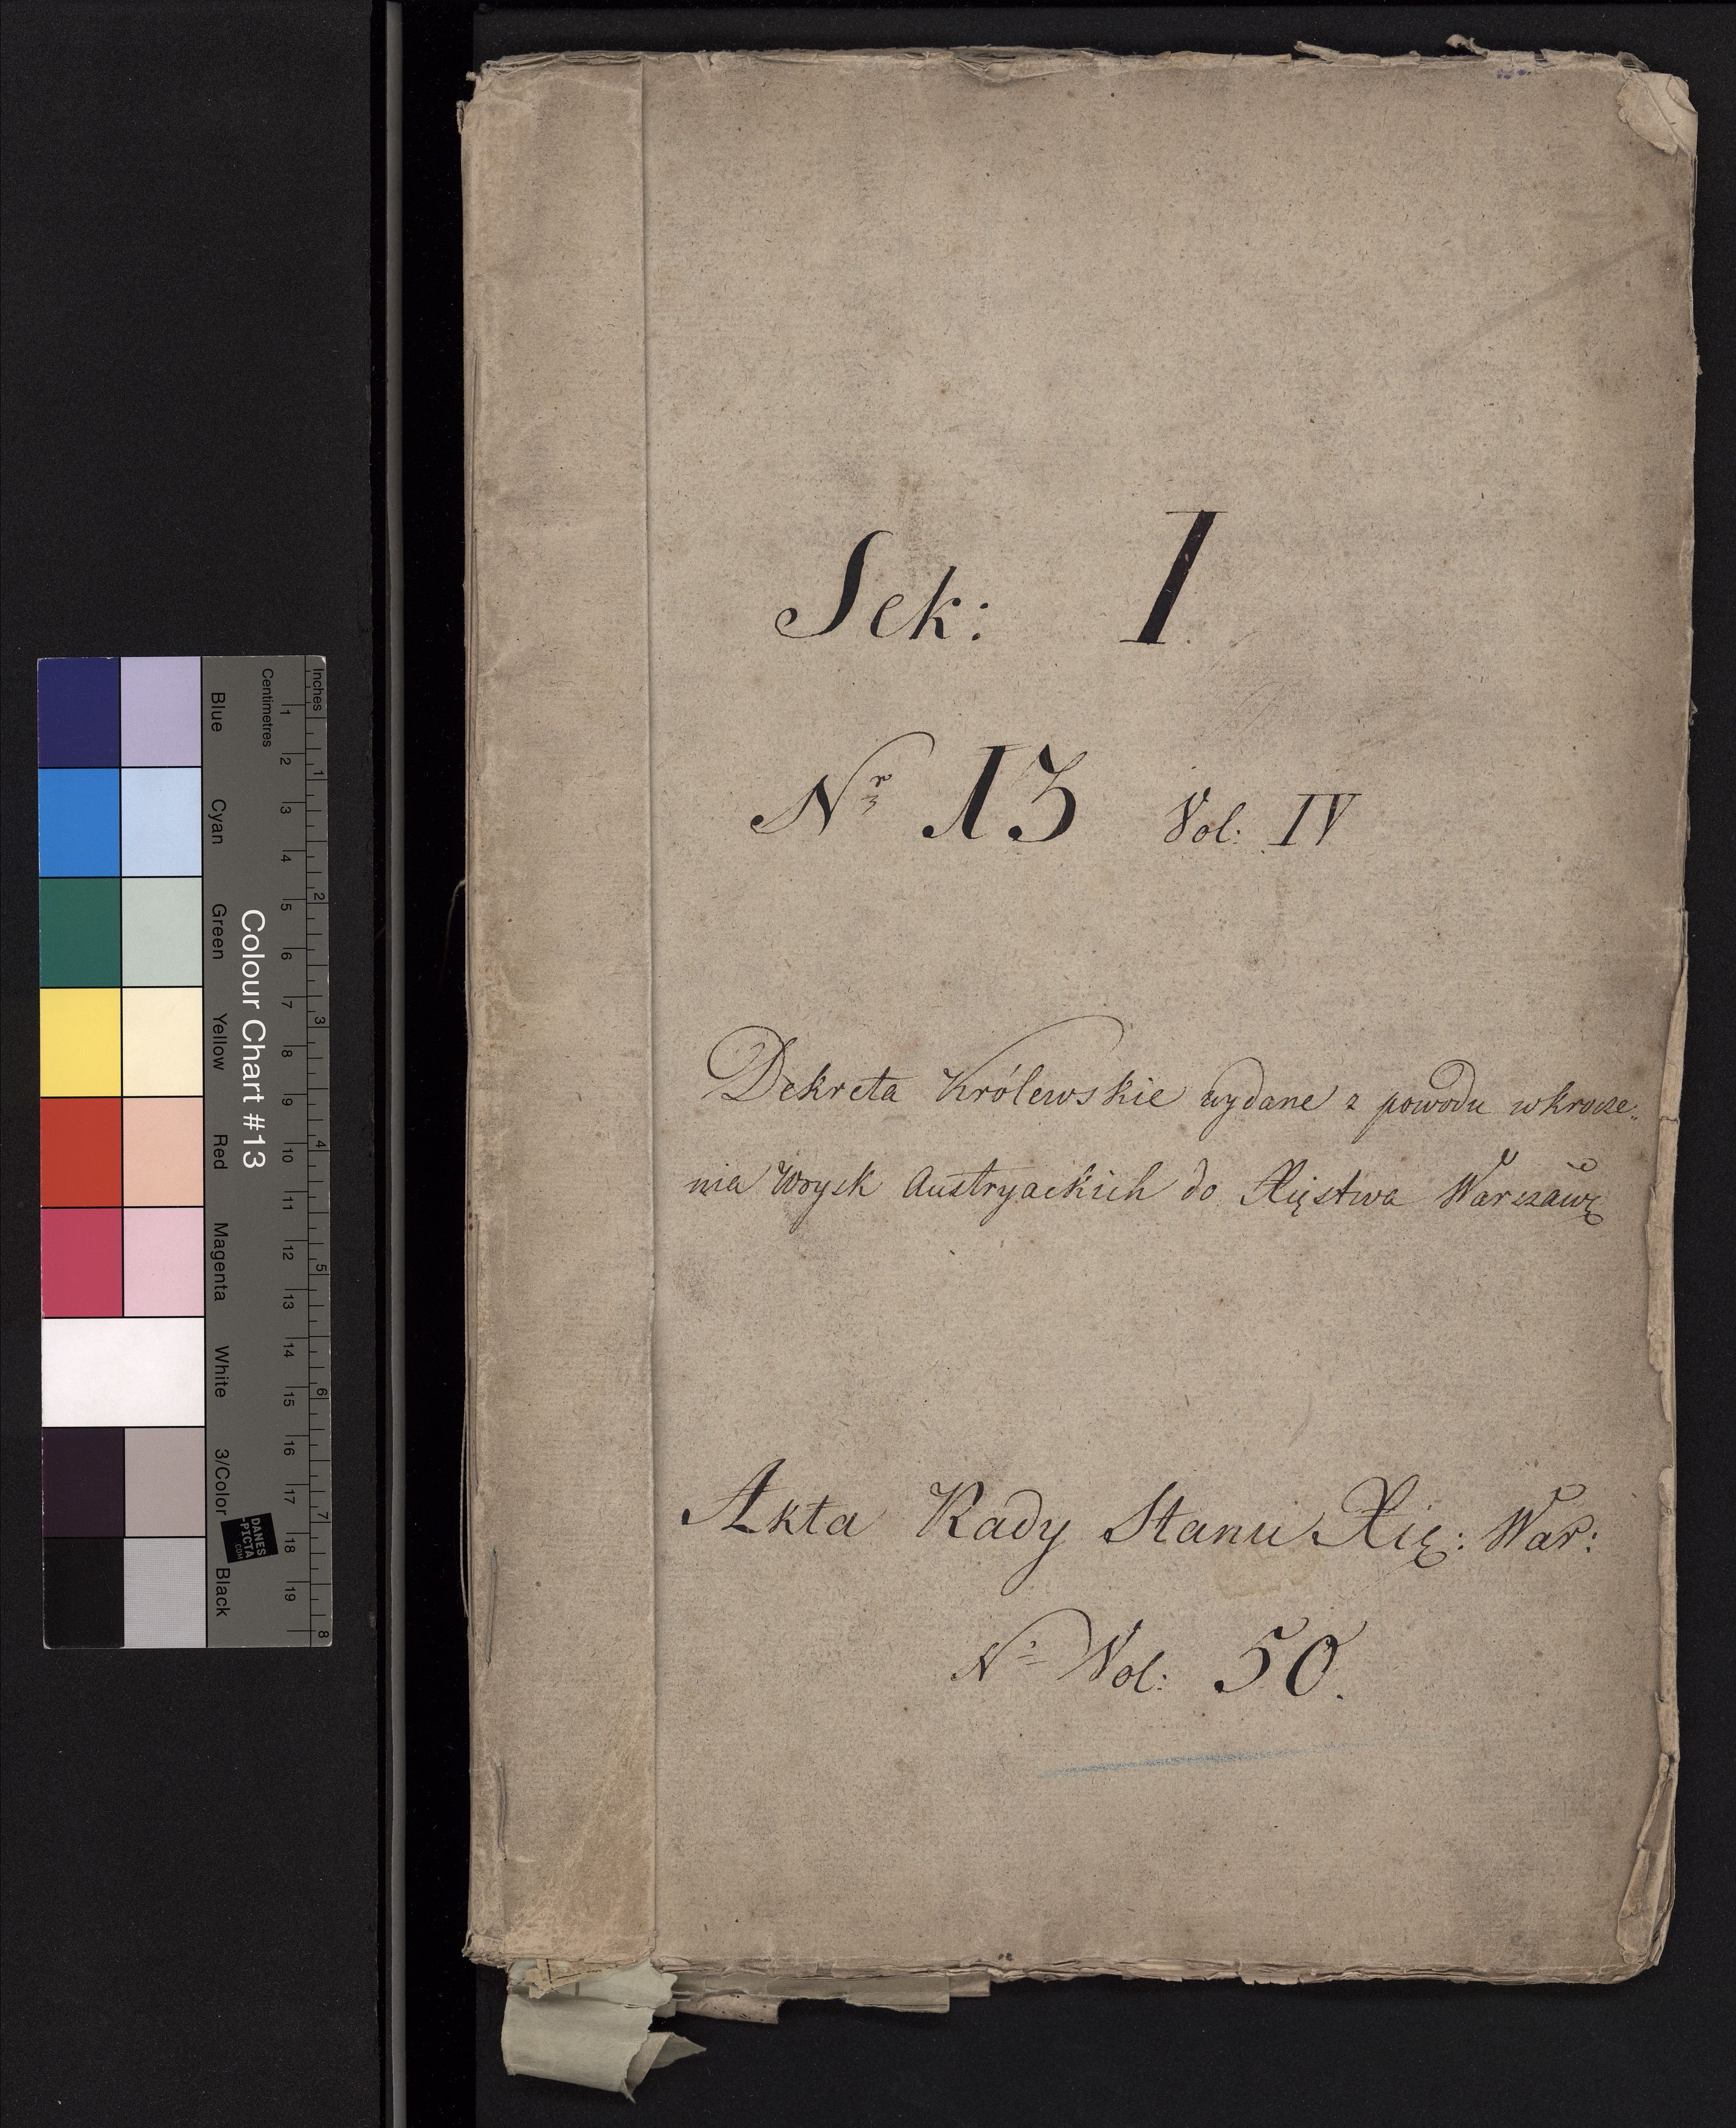 Sek: I.
Nr 13 Vol: IV
Dekreta Królewskie wydane z powodu wkrocze„
nia Woysk Austryackich do Xięstwa Warszawº
Akta Rady Stanu Xię: War:
Nº Vol: 50.
Inches
Centimetres
1 2 3 4 5 6 7 8 9 10 11 12 13 14 15 16 17 18 19
1 2 3 4 5 6 7 8
Colour Chart #13
Blue Cyan Green Yellow Red Magenta White 3/Color Black
DANES
-PICTA
.COM